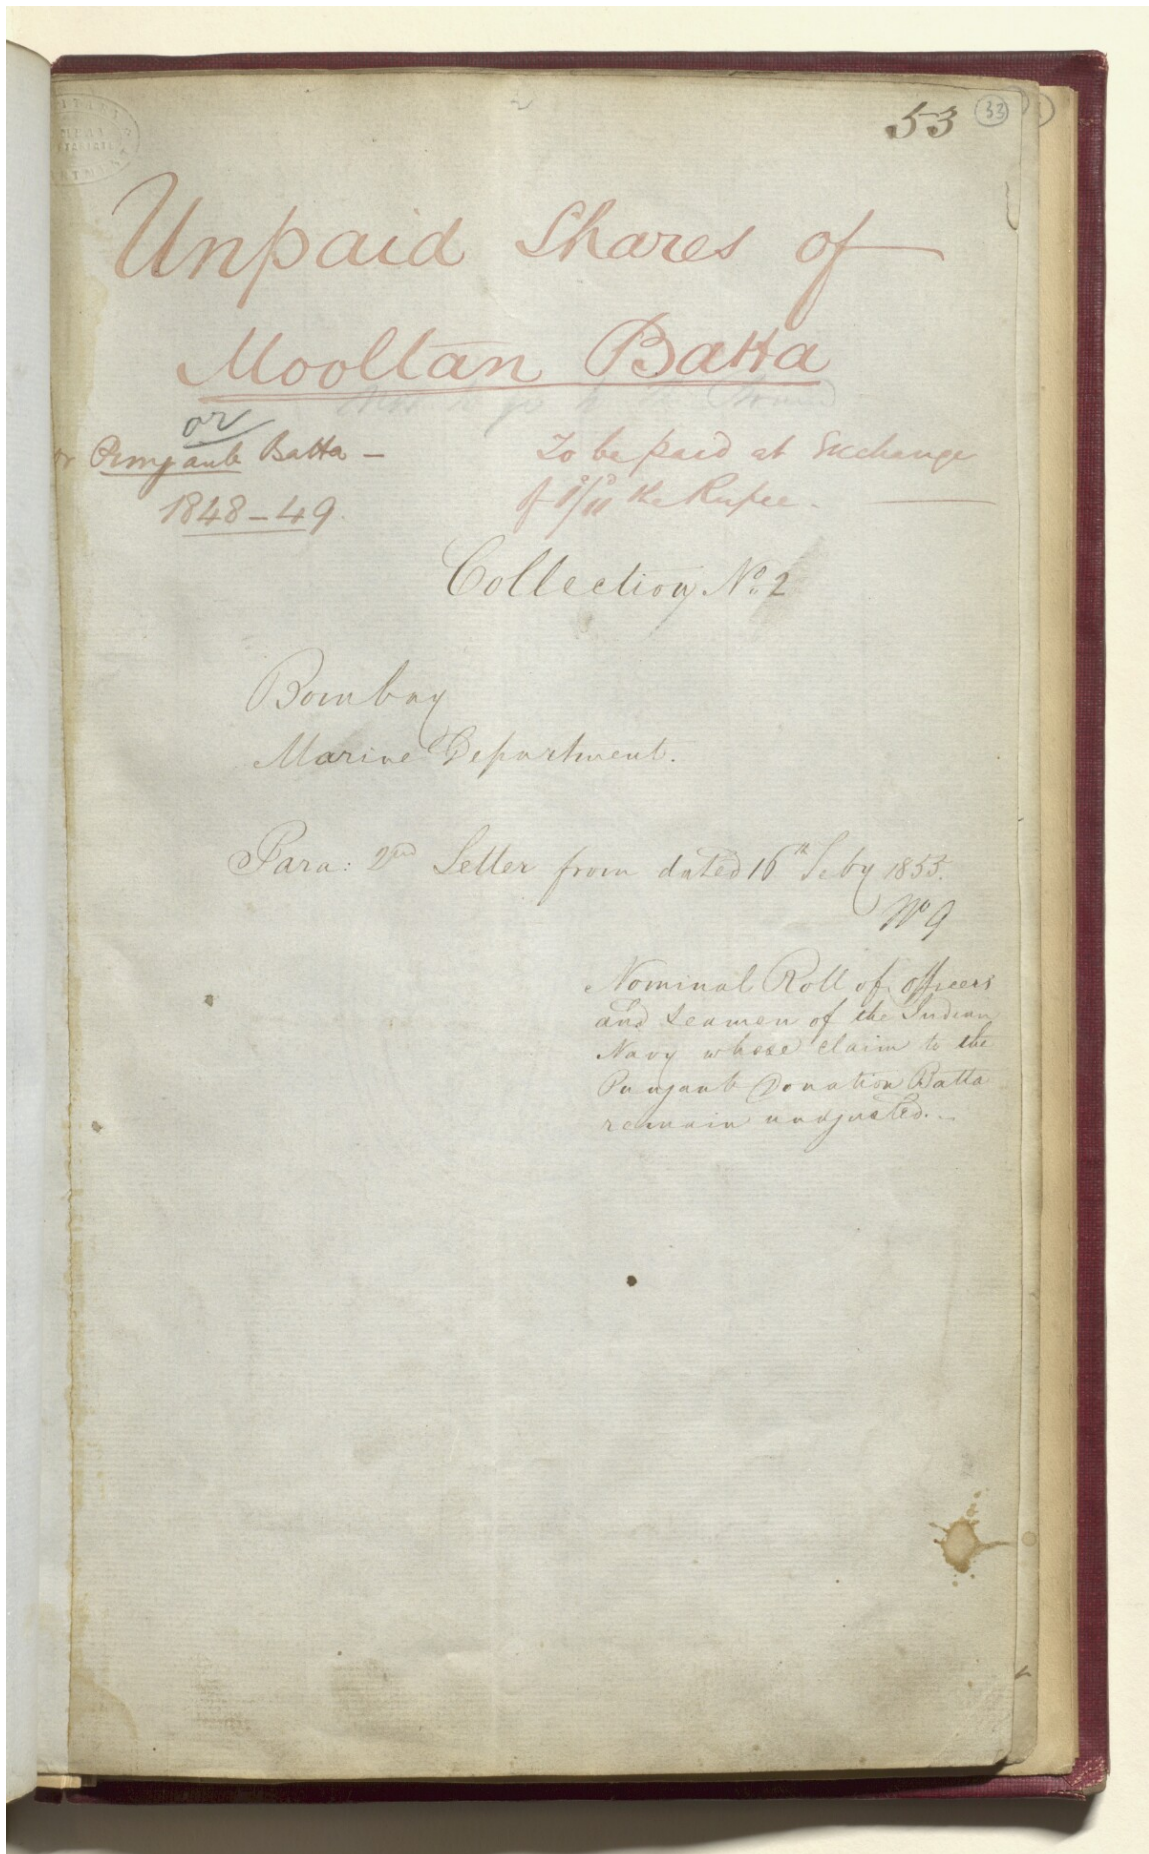 53 33
Unpaid Shares of
Mooltan Batta
or
or Punjaub Batta –
1848–49
To be paid at Exchange
of 1/11 the Rupee.
Collection No. 2
Bombay
Marine Department.
Para: 2nd Letter from dated 16th Feby 1855.
No 9
Nominal Roll of officers
and Seamen of the Indian
Navy whose claim to the
Punjaub Donation Batta
remain unadjusted.